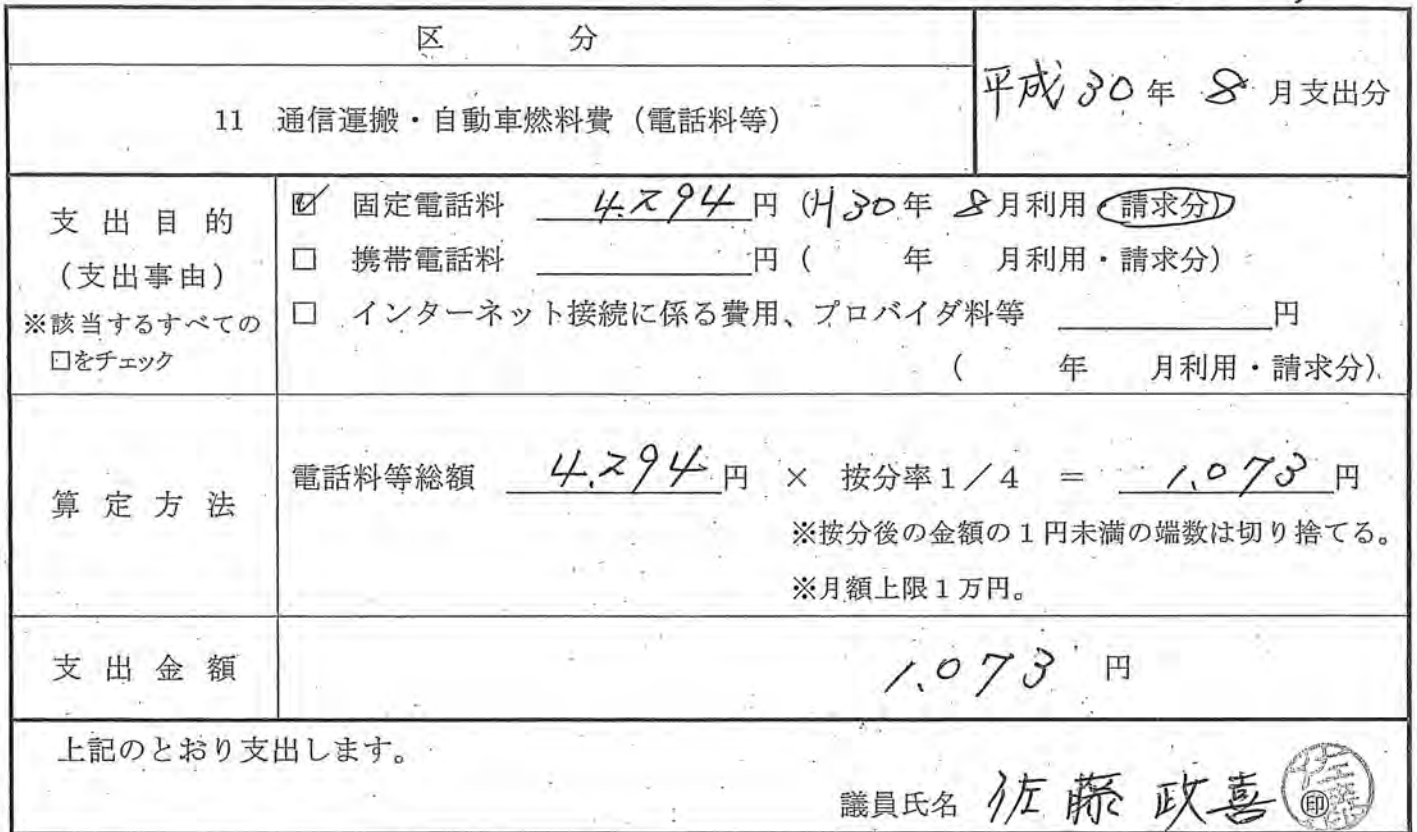 区 分
11 通信運搬・自動車燃料費(電話料等)
平成30年 8月支出分
支出目的
(支出事由)
※該当するすべての
□をチェック
☑ 固定電話料 4.294円 (H30年 8月利用・請求分)
□ 携帯電話料 円( 年 月利用・請求分)
□ インターネット接続に係る費用、プロバイダ料等 円
( 年 月利用・請求分)
算定方法
電話料等総額 4.294円 × 按分率1/4 = 1.073円
※按分後の金額の1円未満の端数は切り捨てる。
※月額上限1万円。
支出金額
1.073 円
上記のとおり支出します。
議員氏名 佐藤 政喜 ㊞